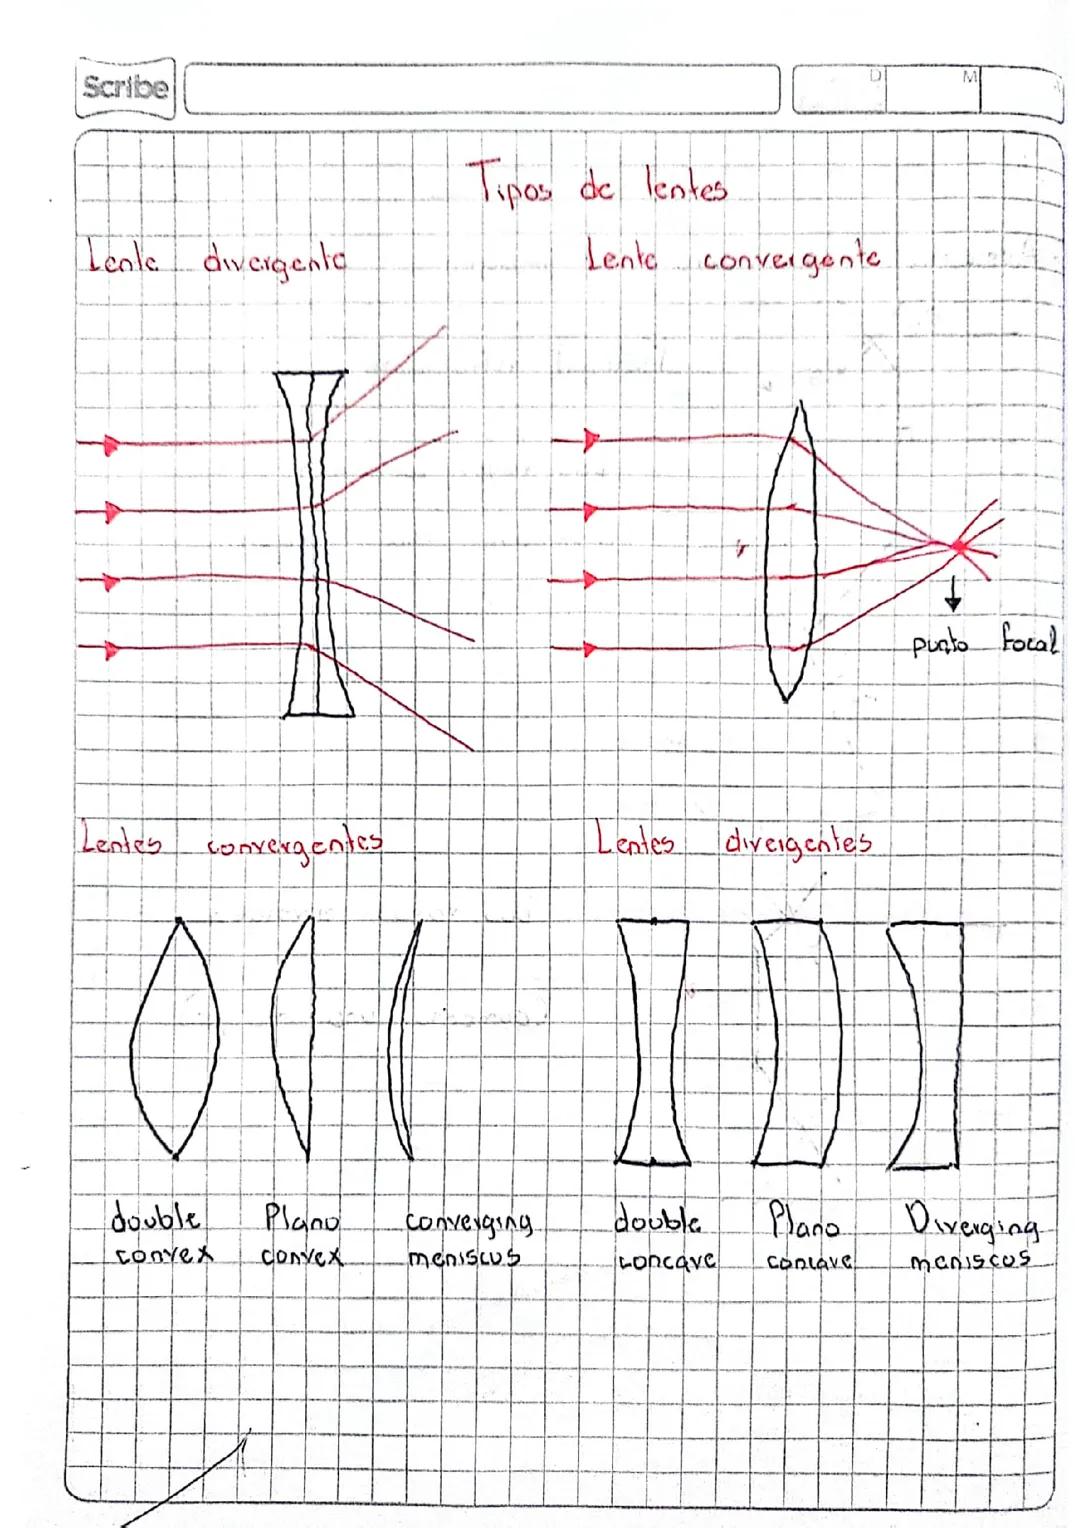 Scribe
D M
Tipos de lentes
Lente divergente
Lente convergente
punto focal
Lentes convergentes
Lentes divergentes
double convex
Plano convex
converging meniscus
double concave
Plano concave
Diverging meniscus